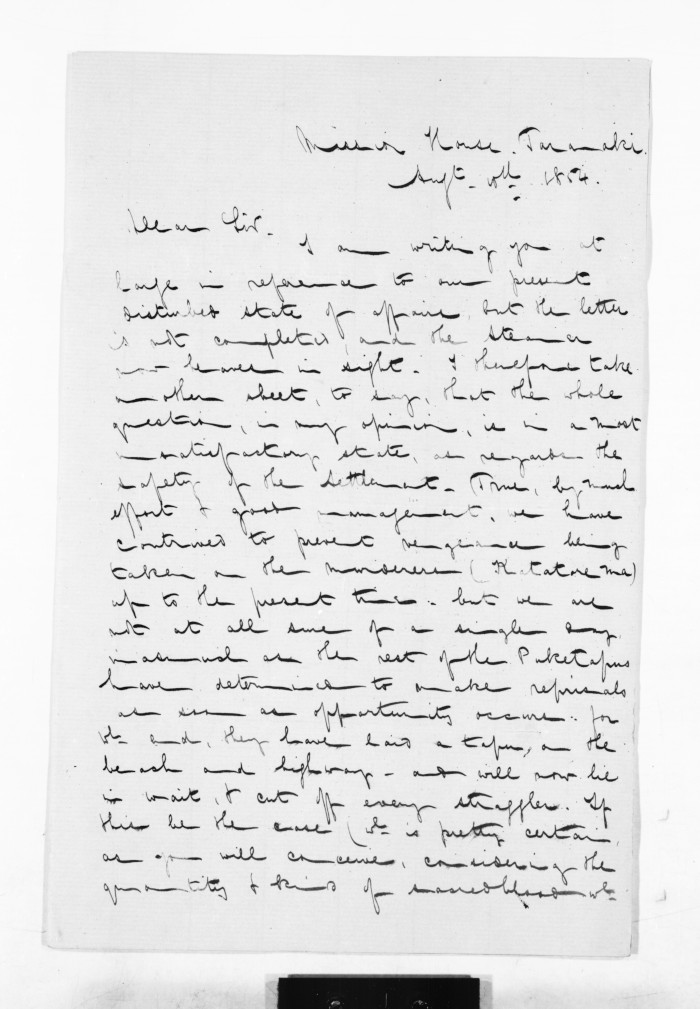 Mission House. Taranaki.
Augt. 10th. 1854.
Dear Sir.
I am writing you at
large in reference to our present
disturbed state of affairs, but the letter
is not completed, and the steamer
now heaves in sight. I therefore take
another sheet, to say, that the whole
question, in my opinion, is in a most
unsatisfactory state, as regards the
safety of the Settlement. True, by much
effort & good management, we have
contrived to prevent vengeance being
taken on the murderers (Katatore ma)
up to the present time. but we are
not at all sure of a single day.
inasmuch as the rest of the Puketapus
have determined to make reprisals
as soon as opportunity occurs. for
wh. end, they have laid a tapu, on the
beach and highway - and will now lie
in wait, & cut off every straggler. If
this be the case (wh. is pretty certain,
as you will conceive, considering the
quantity & kind of sacred blood wh.